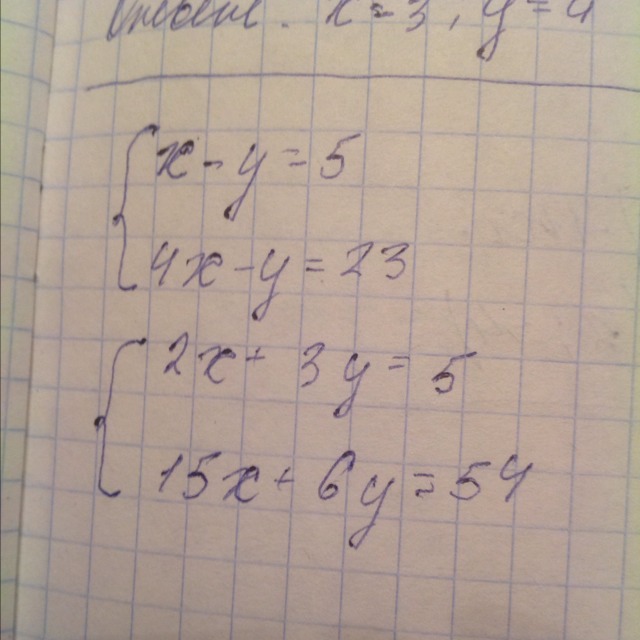 Ответ. x=3, y=4
x-y=5
4x-y=23
2x+3y=5
15x+6y=54